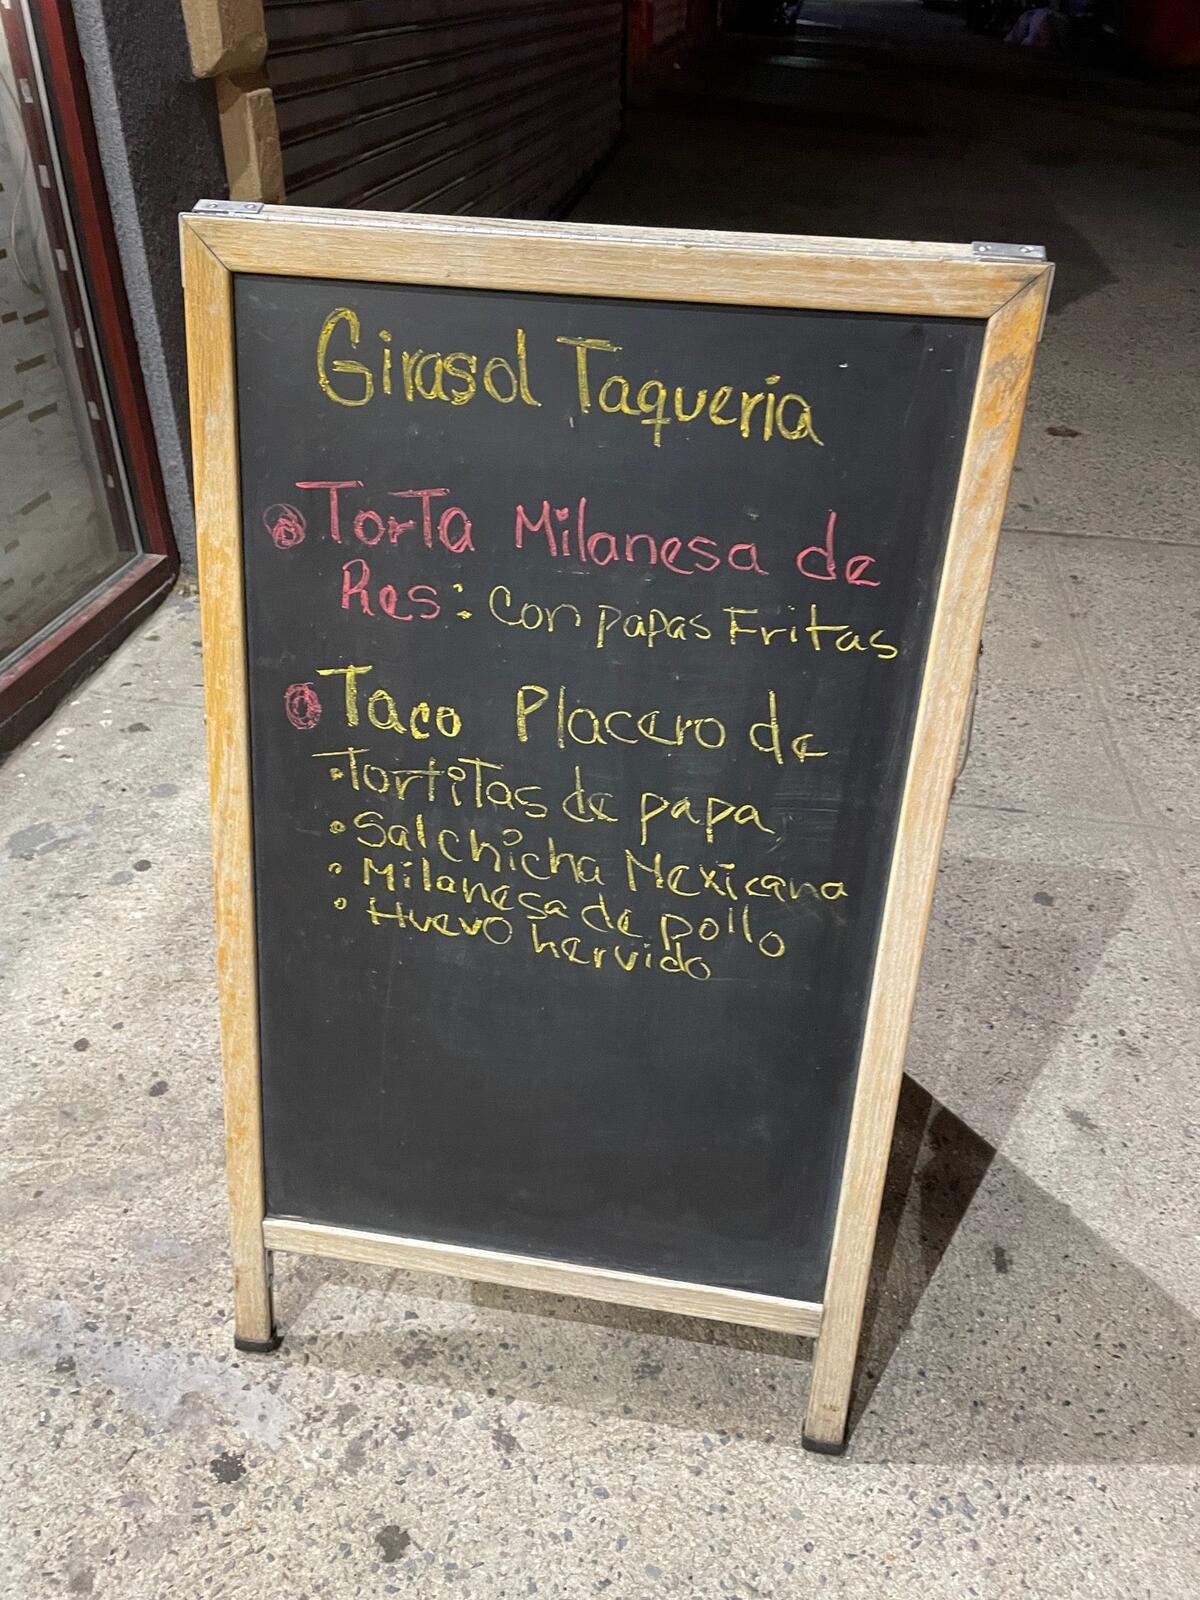 Girasol Taquería
Torta Milanesa de
Res: Con papas Fritas
Taco Placero de
• Tortitas de papa
• Salchicha Mexicana
• Milanesa de pollo
• Huevo hervido